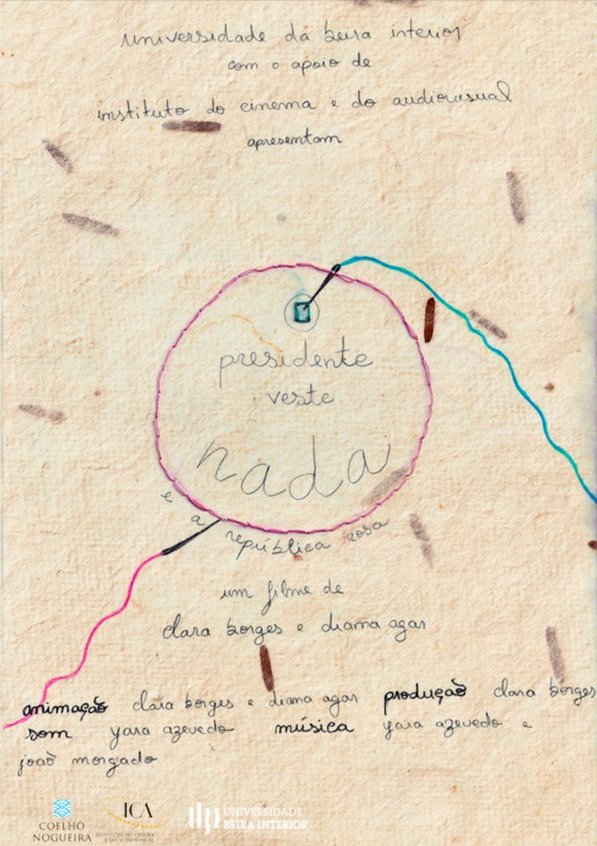 universidade da beira interior
com o apoio de
instituto do cinema e do audiovisual
apresentam
presidente
veste
nada
e a república rosa
um filme de
clara borges e diana agar
animação clara borges e diana agar produção clara borges
som yara azevedo música yara azevedo e
joão morgado
COELHO
NOGUEIRA
ICA
INSTITUTO DO CINEMA
E DO AUDIOVISUAL
UNIVERSIDADE
BEIRA INTERIOR